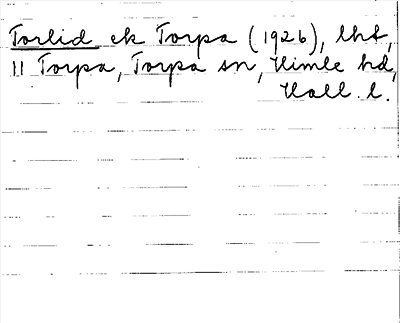 Torlid ek Torpa (1926), lht,
11 Torpa, Torpa sn, Himle hd,
Hall. l.